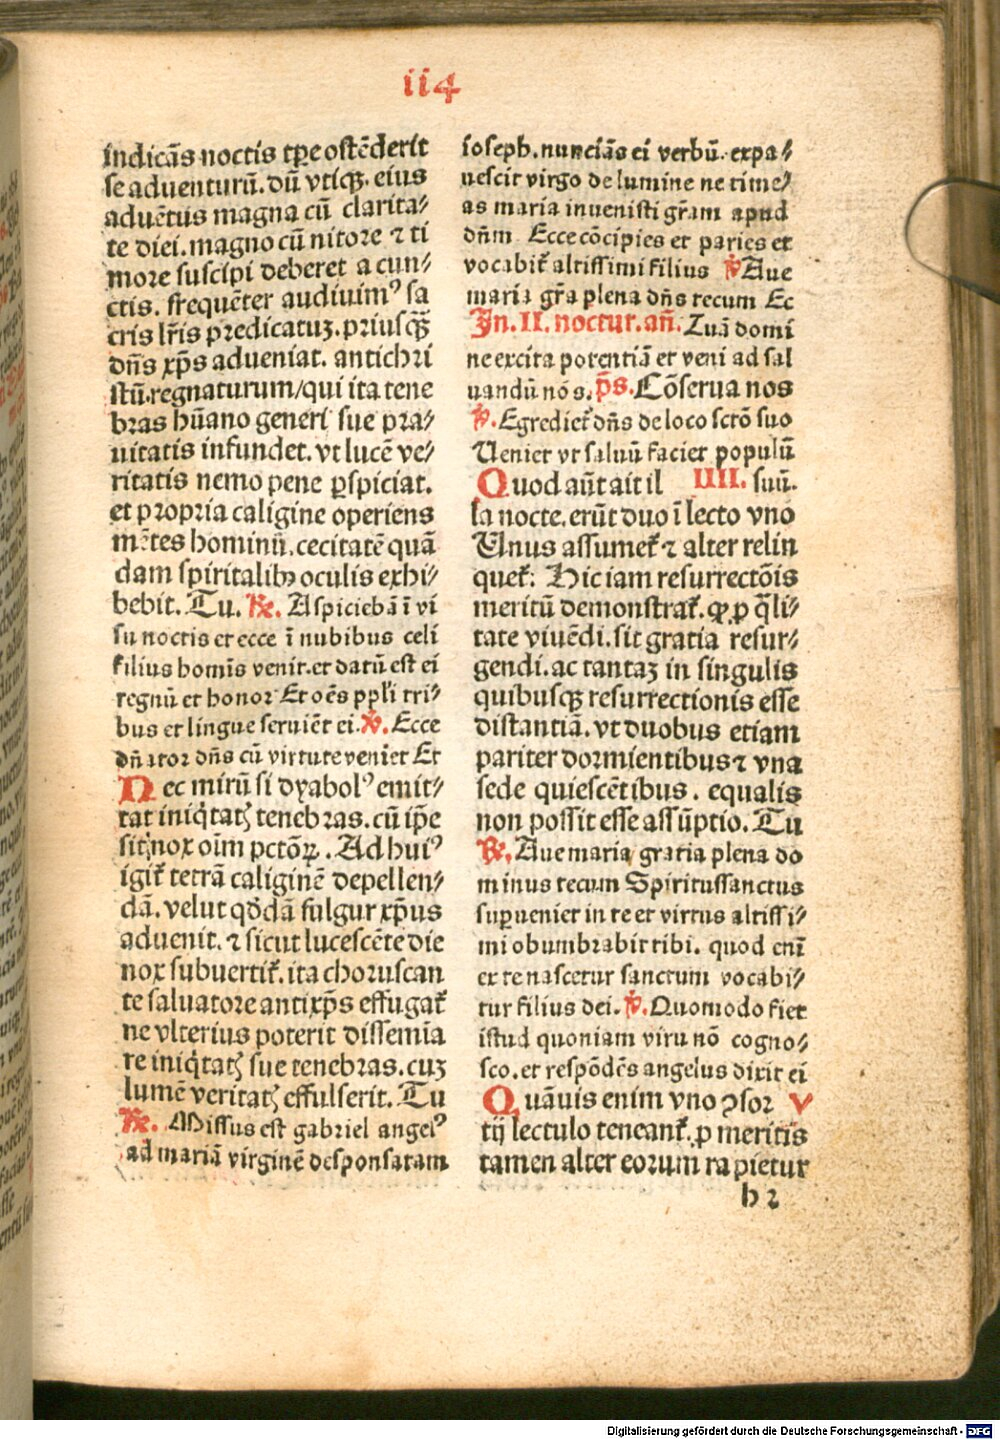 114
indicās noctis tꝑe ostēderit
se aduenturū. dū vtiqꝫ. eius
aduētus magna cū clarita⸗
te diei. magno cū nitore ⁊ ti
more suscipi deberet a cun⸗
ctis. frequēter audiuimꝰ sa
cris lr̄is predicatuꝫ. priusqꝫ̄
dn̄s xp̄s adueniat. antichri
stū. regnaturum/qui ita tene
bras hūano generi sue pra⸗
uitatis infundet. vt lucē ve⸗
ritatis nemo pene ꝑspiciat.
et propria caligine operiens
mētes hominū. cecitatē quā
dam spiritalibꝫ oculis exhi⸗
bebit. Tu. ℟. Aspiciebā ī vi
su noctis et ecce ī nubibus celi
filius homīs venit. et datū est ei
regnū et honor Et oēs ppl̓i tri⸗
bus et lingue seruiēt ei. ℣. Ecce
dn̄ator dn̄s cū virtute veniet Et
Nec mirū si dyabolꝰ emit⸗
tat iniq̇tatꝭ tenebras. cū ip̄e
sit nox oīm pctōꝝ. Ad huiꝰ
igit̄ tetrā caliginē depellen⸗
dā. velut qōdā fulgur xp̄us
aduenit. ⁊ sicut lucescēte die
nox subuertit̄. ita choruscan
te saluatore antixp̄s effugat̄
ne vlterius poterit dissemīa
re iniq̇tatꝭ sue tenebras. cuꝫ
lumē veritatꝭ effulserit. Tu
℟. Missus est gabriel angelꝰ
ad mariā virginē desponsatam
ioseph. nunciās ei verbū. expa⸗
uescit virgo de lumine ne time⸗
as maria inuenisti gr̄am apud
dn̄m Ecce cōcipies et paries et
vocabit̄ altissimi filius ℣ Aue
maria gr̄a plena dn̄s tecum Ec
In. II. noctur. an̄. Zuā domi
ne excita potentiā et veni ad sal
uandū nos. p̄s. Cōserua nos
℣. Egrediet̄ dn̄s de loco scto̅ suo
Ueniet vt saluū faciet populū
Quod aūt ait il IIII. suū.
la nocte. erūt duo ī lecto vno
Unus assumet̄ ⁊ alter relin
quet̄: Hic iam resurrectōis
meritū demonstrat̄. qꝫ ꝓ q̄li⸗
tate viuēdi. sit gratia resur⸗
gendi. ac tantaꝫ in singulis
quibusqꝫ resurrectionis esse
distantiā. vt duobus etiam
pariter dormientibus ⁊ vna
sede quiescētibus. equalis
non possit esse assūptio. Tu
℟. Aue maria gratia plena do
minus tecum Spiritussanctus
suꝑueniet in te et virtus altissi⸗
mi obumbrabit tibi. quod enī
ex te nascetur sanctum vocabi⸗
tur filius dei. ℣. Quomodo fiet
istud quoniam viru nō cogno⸗
sco. et respōdēs angelus dixit ei
Quāuis enim vno ꝯsor V
tij lectulo teneant̄. ꝓ meritis
tamen alter eorum rapietur
h 2
Digitalisierung gefördert durch die Deutsche Forschungsgemeinschaft - DFG